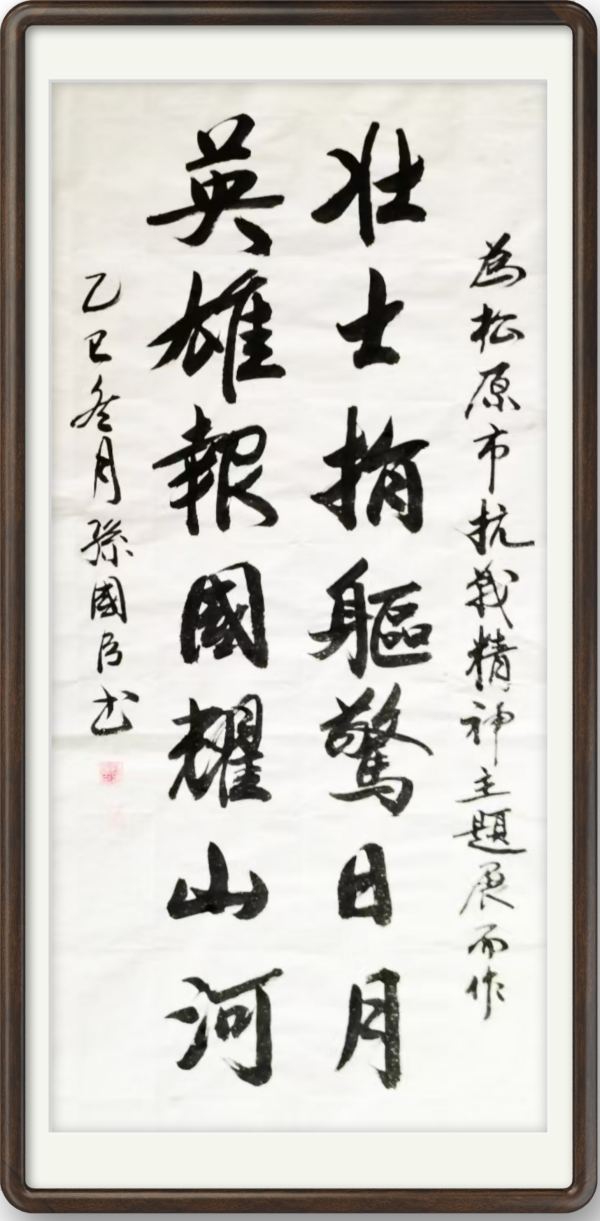 為松原市抗战精神主題展而作
壯士捐軀驚日月
英雄報國耀山河
乙巳冬月孫國民书